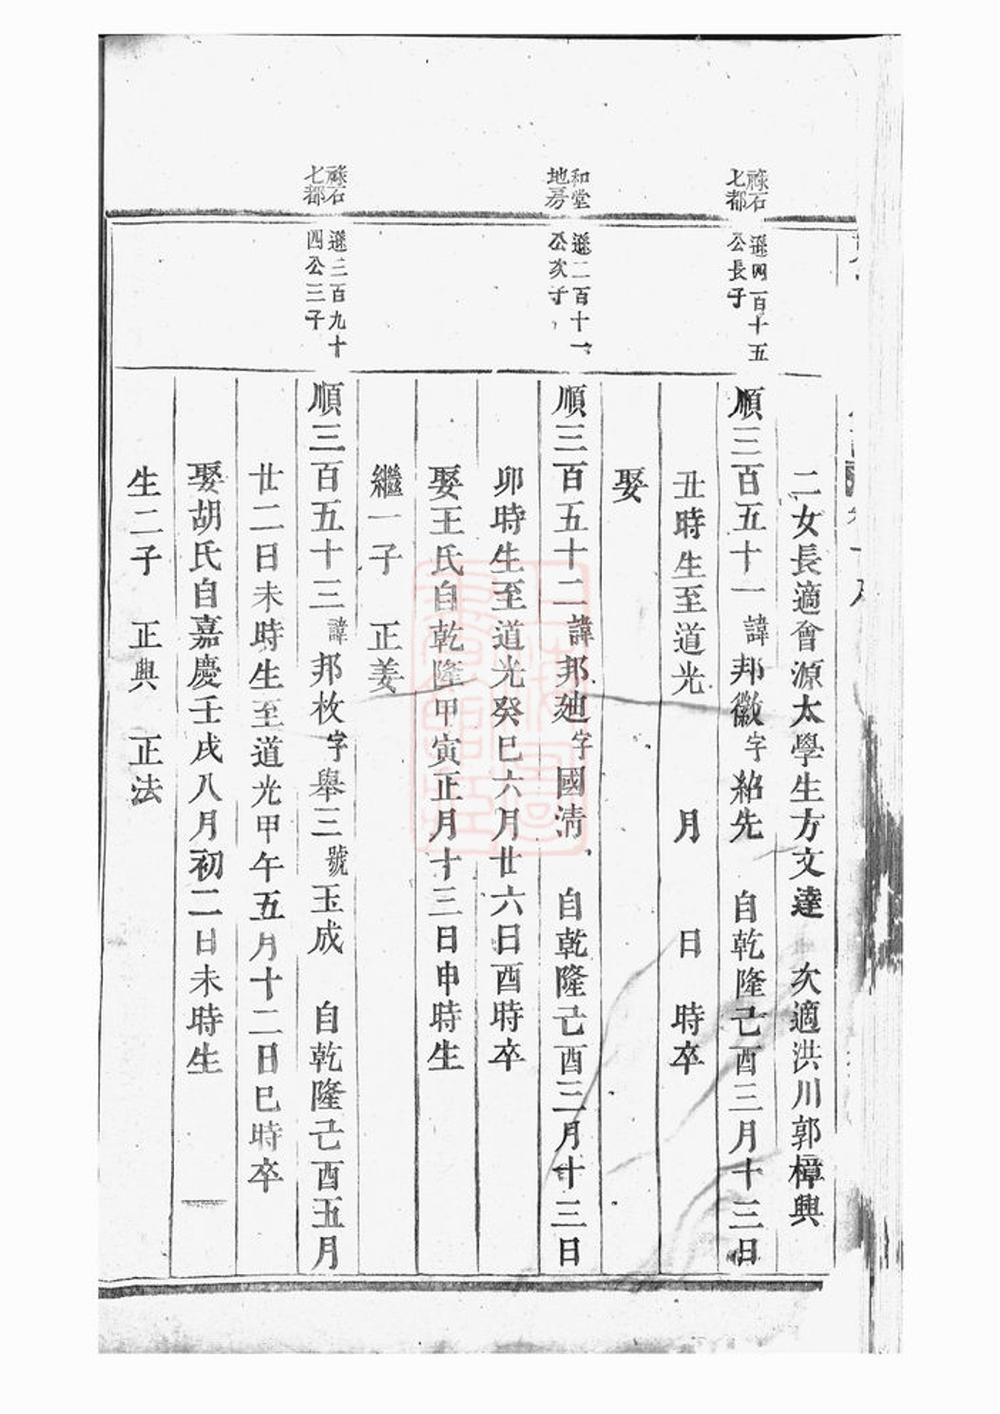 二女長適會源太學生方文達 次適洪川郭樟興
祿石
七都
遜四百十五
公長子
順三百五十一諱邦徽字紹先 自乾隆己酉三月十三日
丑時生至道光 月 日 時卒
娶
和堂
地房
遜二百十一
公次子
順三百五十二諱邦廸字國淸 自乾隆己酉三月十三日
卯時生至道光癸巳六月廿六日酉時卒
娶王氏自乾隆甲寅正月十三日申時生
繼一子 正姜
祿石
七都
遜三百九十
四公三子
順三百五十三諱邦枚字舉三號玉成 自乾隆己酉五月
廿二日未時生至道光甲午五月十二日巳時卒
娶胡氏自嘉慶壬戌八月初二日未時生
生二子 正興 正法